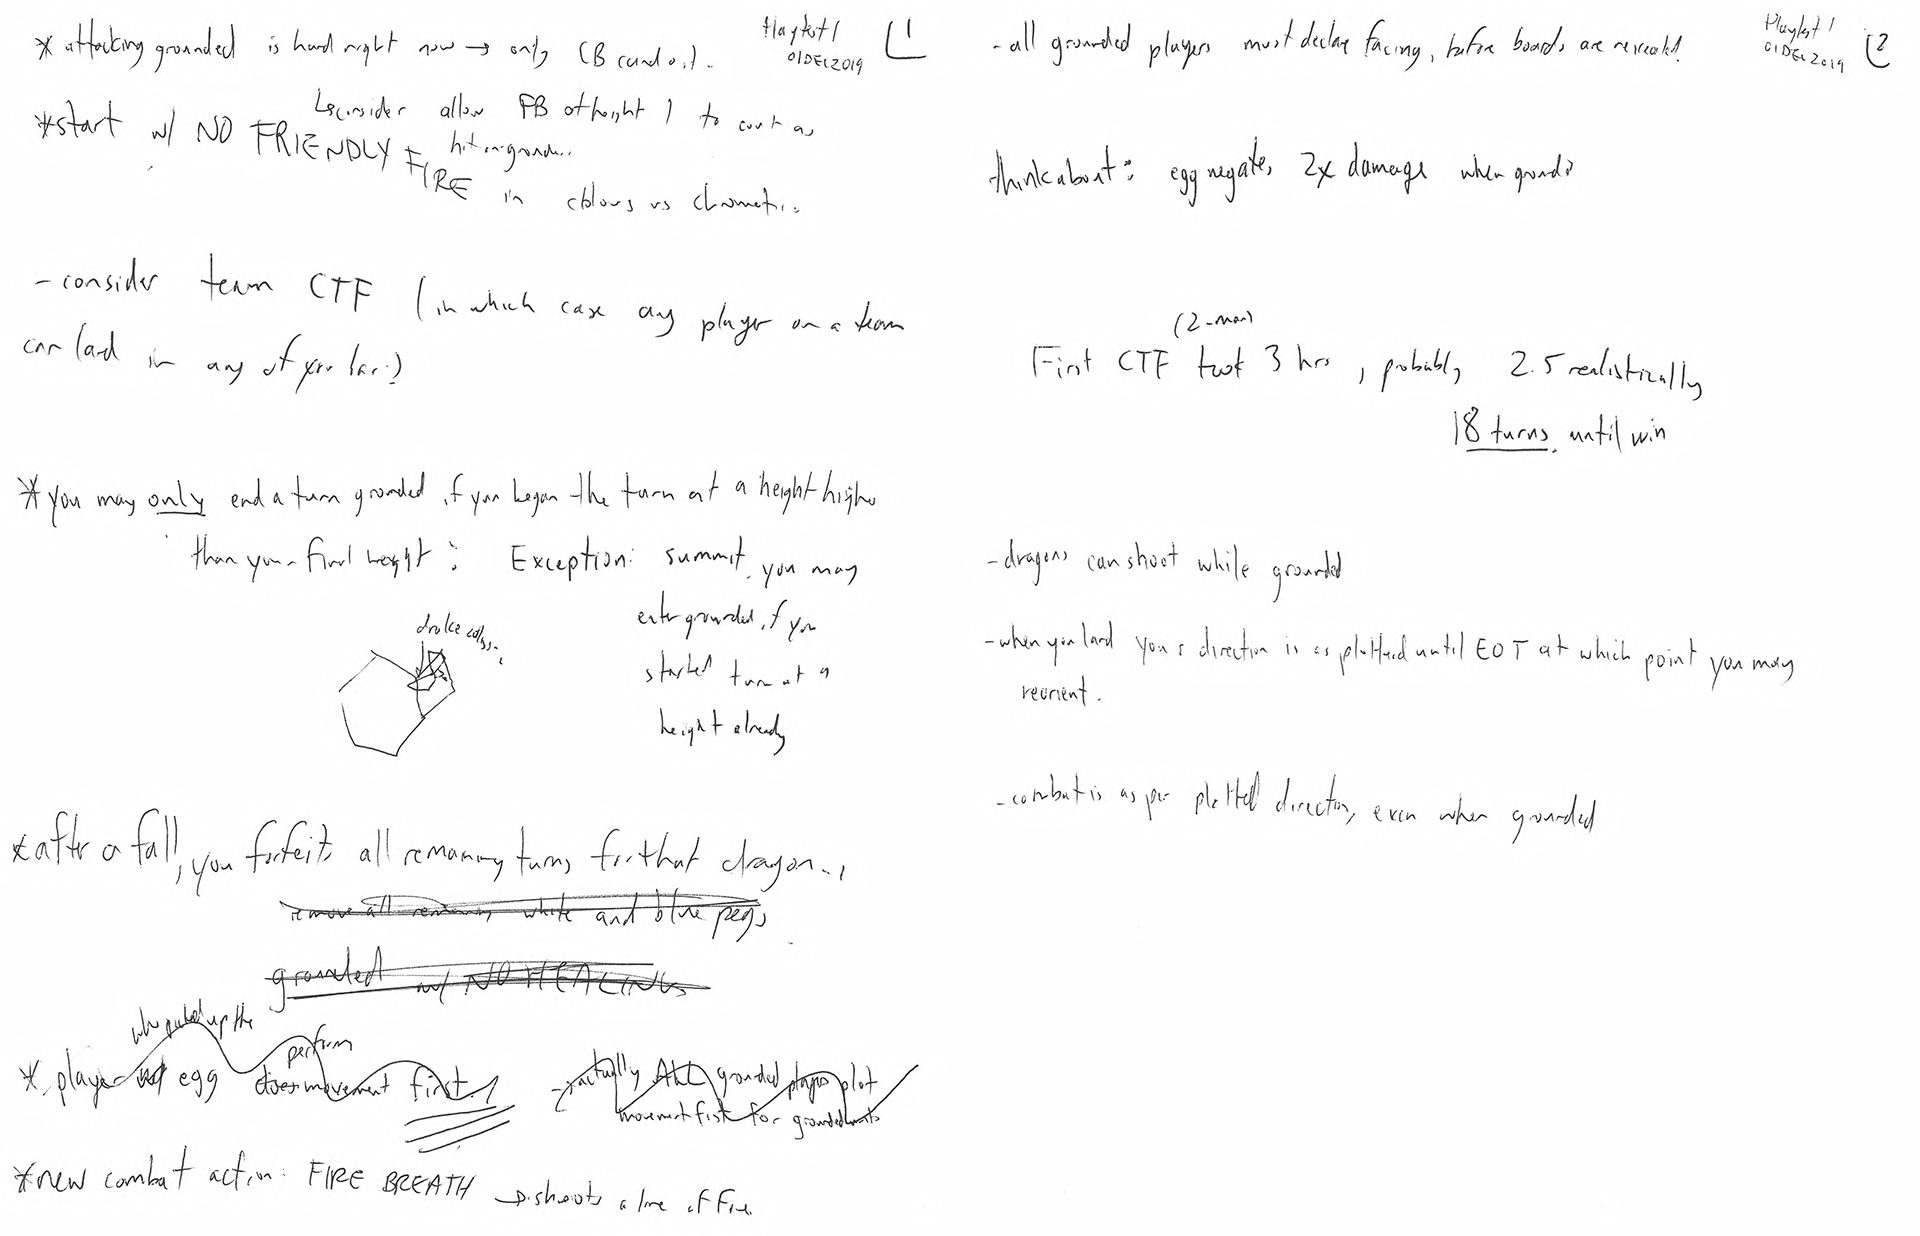 Playtest 1
01DEC2019
1
* attacking grounded is hard right now → only CB can do it.
↳ consider allow FB at height 1 to count as
hit on ground..
* start w/ NO FRIENDLY FIRE in colours vs chromatic..
- consider team CTF (in which case any player on a team
can land in any of your lairs?)
* you may only end a turn grounded if you began the turn at a height higher
than your final height: Exception: summit, you may
enter grounded if you
started turn at a
height already
drake
* after a fall, you forfeits all remaining turns for that dragon..,
remove all remaining white and blue pegs
grounded w/ NO HEALING
who picked up the
perform
* player w/ egg does movement first!
- actually ALL grounded players plot
movement first for grounded units
* new combat action: FIRE BREATH → shoots a line of fire.
Playtest 1
01DEC2019
2
- all grounded players must declare facing, before boards are revealed!
think about: egg negates 2x damage when ground?
(2-man)
First CTF took 3 hrs, probably 2.5 realistically
18 turns until win
- dragons can shoot while grounded
- when you land your direction is as plotted until EOT at which point you may
reorient.
- combat is as per plotted direction, even when grounded